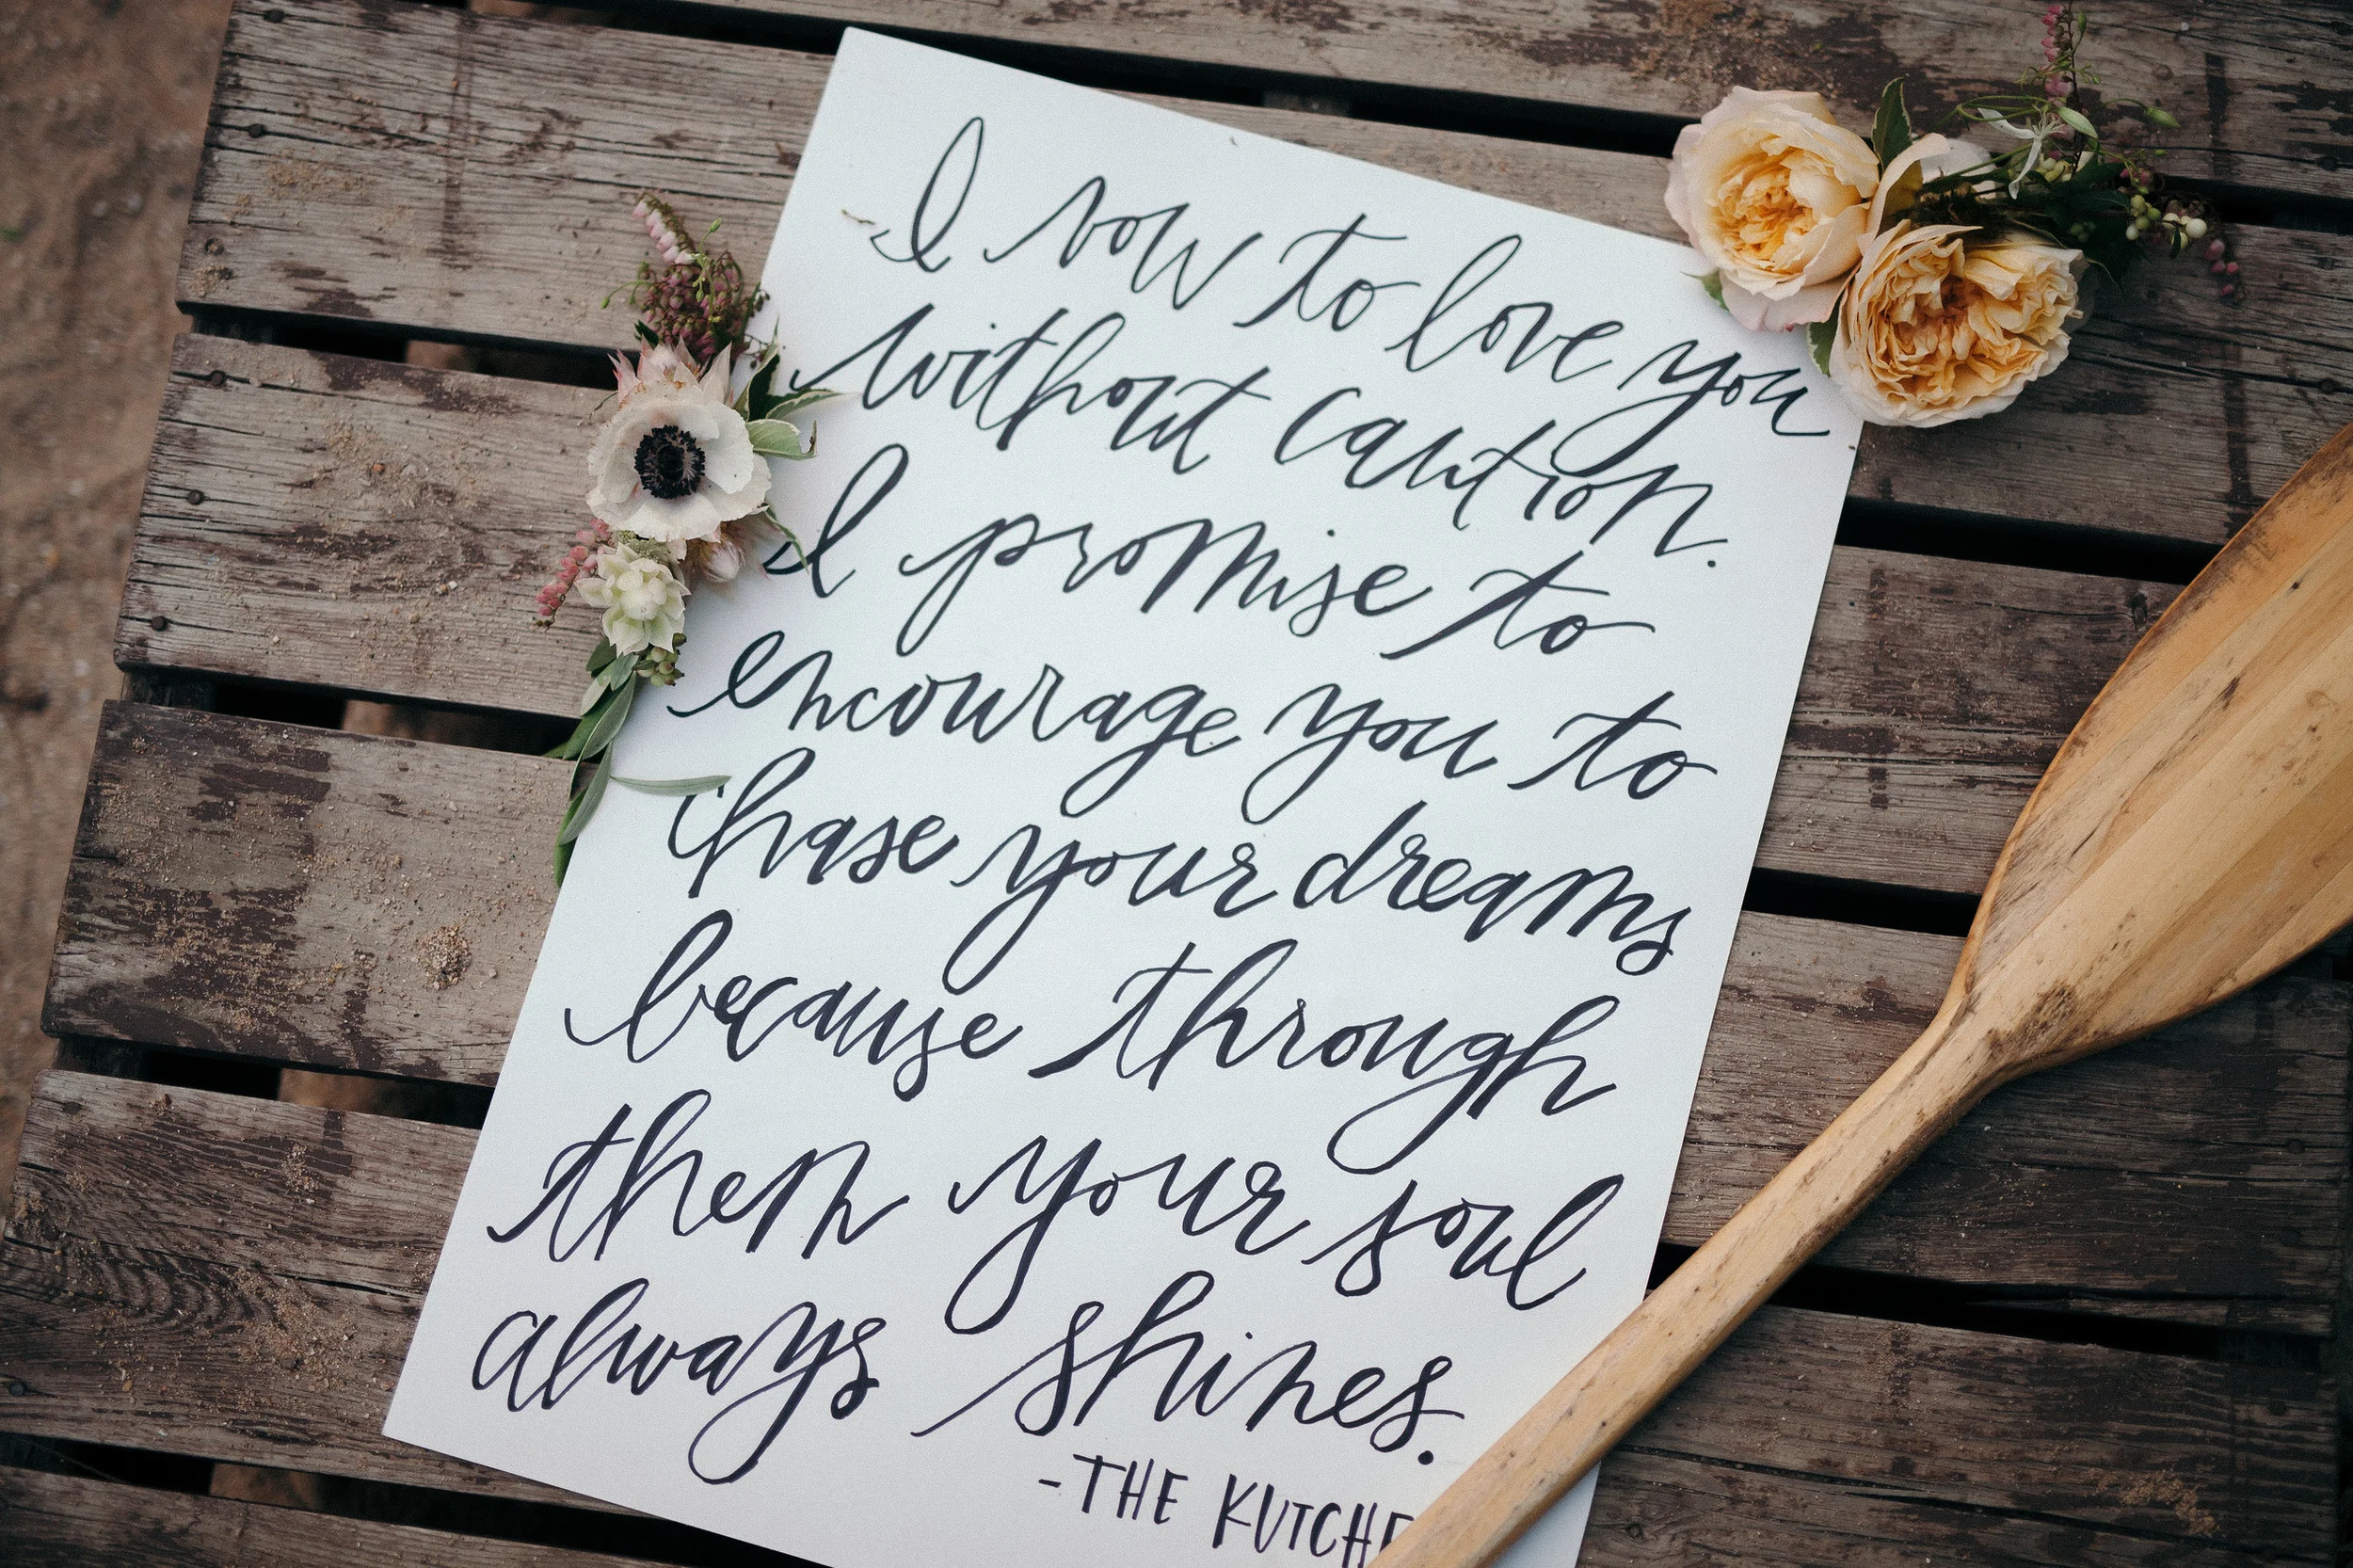 I vow to love you
without caution.
I promise to
encourage you to
chase your dreams
because through
them your soul
always shines.
-THE